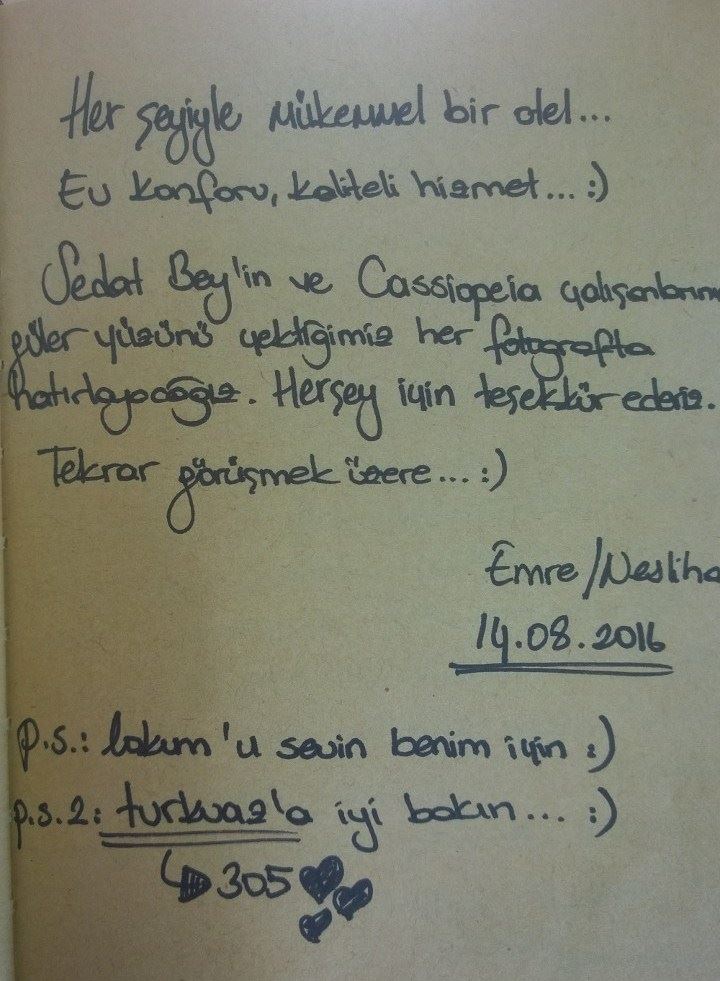 Her şeyiyle mükemmel bir otel...
Ev konforu, kaliteli hizmet... :)
Sedat Bey'in ve Cassiopeia çalışanlarını
güler yüzünü çektiğimiz her fotoğrafta
hatırlayacağız. Herşey için teşekkür ederiz.
Tekrar görüşmek üzere... :)
Emre/Nesliha
14.08.2016
p.s.: lokum'u sevin benim için :)
p.s.2: turkuaz'a iyi bakın... :)
305